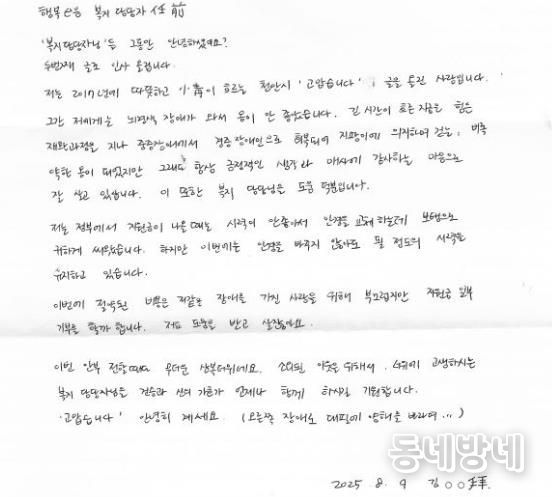 행복e음 복지 담당자 任前
'복지담당자님'들 그동안 안녕하셨어요?
두번째 글로 인사 올립니다.
저는 2017년에 따뜻하고 小青이 흐르는 천안시 '고맙습니다', 글을 올린 사람입니다.
그간 저에게는 뇌경색 장애가 와서 몸이 안 좋았습니다. 긴 시간이 흐른 지금은 힘든
재활과정을 지나 중증장애에서 경증장애인으로 회복되어 지팡이에 의지하여 걷는, 비록
약한 몸이 되었지만 그래도 항상 긍정적인 생각과 매사에 감사하는 마음으로
잘 살고 있습니다. 이 또한 복지 담당님들 도움 덕분입니다.
저는 정부에서 지원금이 나올때는 시력이 안좋아서 안경을 교체하는데 보탬으로
귀하게 써왔습니다. 하지만 이번에는 안경을 바꾸지 않아도 될 정도의 시력을
유지하고 있습니다.
이번에 절약된 비용은 저같은 장애를 가진 사람을 위해 부끄럽지만 지원금 일부
기부를 할까 합니다. 저도 도움을 받고 살잖아요.
이번 안부 전할때는 무더운 삼복더위에요. 소외된 이웃은 위해서, 더위에 고생하시는
복지 담당자님들 건승과 신의 가호가 언제나 함께 하시길 기원합니다.
'고맙습니다' 안녕히 계세요. (오른쪽 장애로 대필에 양해를 바라며...)
2025 8. 9 김○○拜.
동네방네